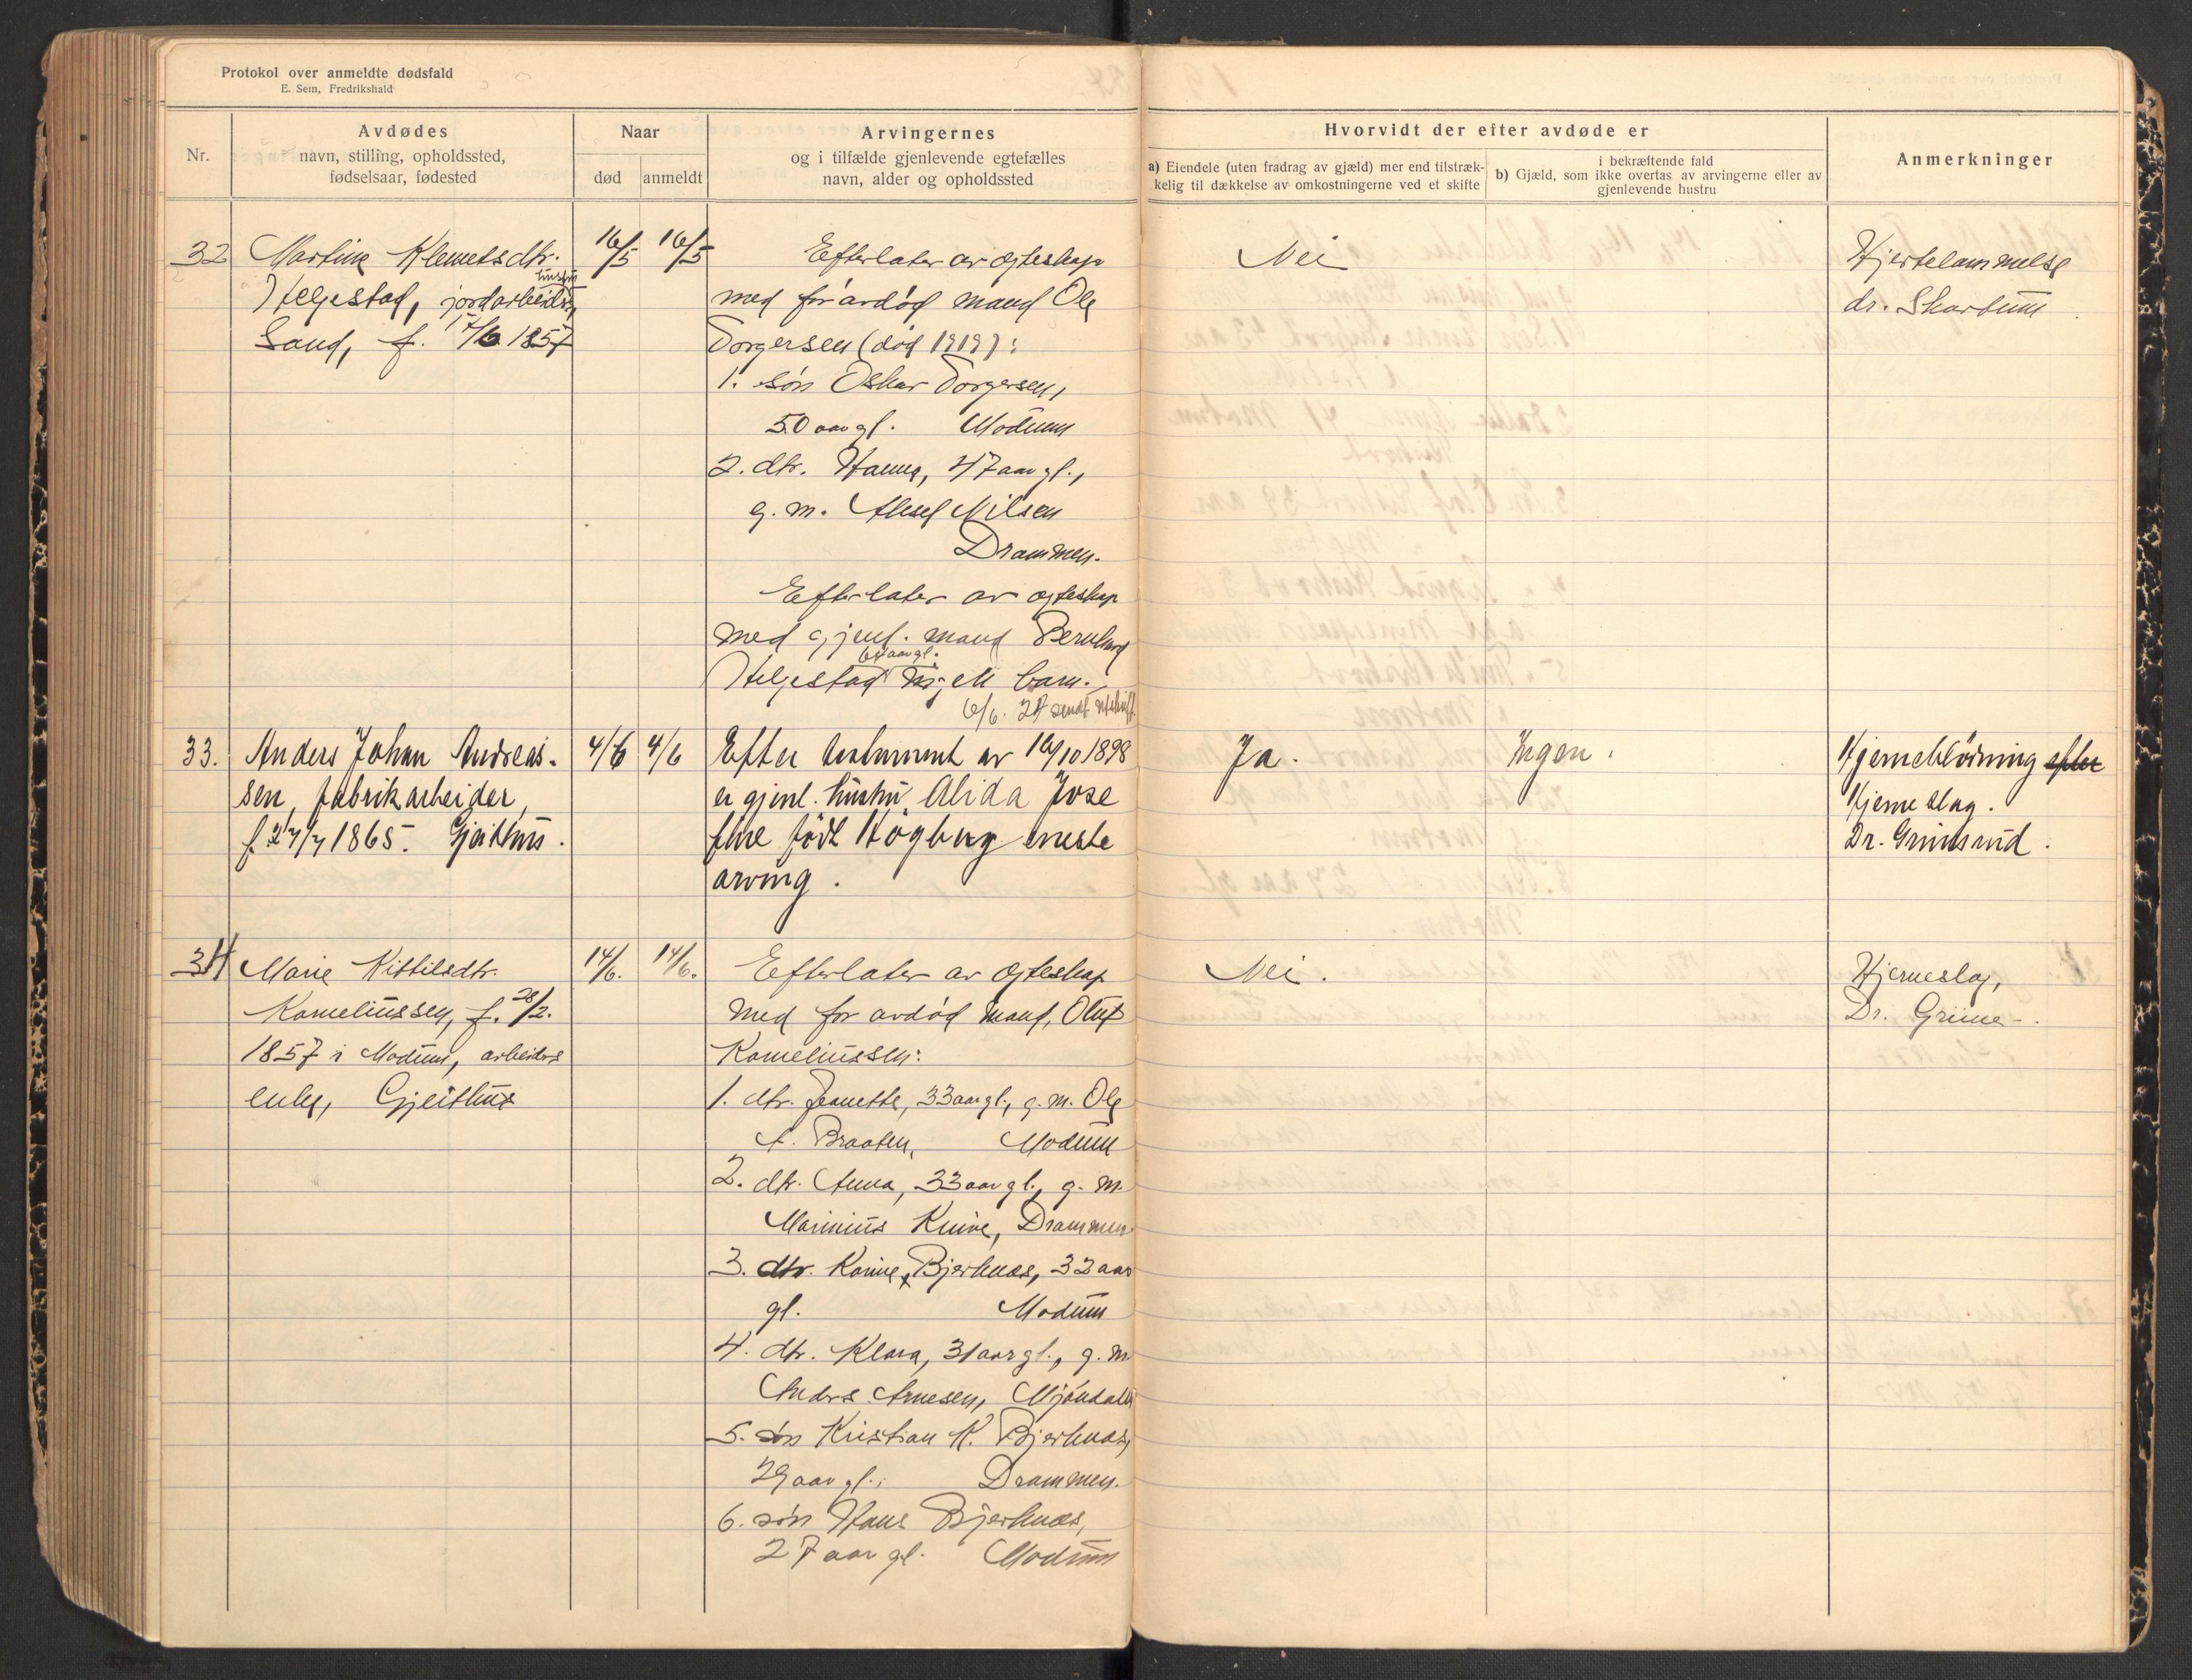 Protokol over anmeldte dødsfald
E. Sem, Fredrikshald
Nr.
Avdødes
navn, stilling, opholdssted,
fødselsaar, fødested
Naar
død
anmeldt
Arvingernes
og i tilfælde gjenlevende egtefælles
navn, alder og opholdssted
Hvorvidt der efter avdøde er
a) Eiendele (uten fradrag av gjæld) mer end tilstræk-
kelig til dækkelse av omkostningerne ved et skifte
i bekræftende fald
b) Gjæld, som ikke overtas av arvingerne eller av
gjenlevende hustru
Anmerkninger
32 Martine Klemetsdtr.
hustru
Helgestad, jordarbeiders,
Sand, f. 17/6 1857
16/5 16/5
Efterlater av egteskap
med for avdød mand Ole
Torgersen (død 1919):
1. søn Oskar Torgersen,
50 aar gl. Modum
2. dtr. Hanna, 47 aar gl.,
g. m. Aksel Nilsen
Drammen.
Efterlater av egteskap
med gjenl. mand Bernhard
64 aar gl.
Helgestad ingen barn.
6/6. 24 sendt utskrift
Nei
Hjertelammelse
dr. Skartum
33. Anders Johan Andreas-
sen, fabrikarbeider,
f. 27/7 1865. Gjeithus.
4/6 4/6
Efter testament av 16/10 1898
er gjenl. hustru, Alida Jose
fine født Högberg eneste
arving.
Ja.
Ingen.
Hjerneblödning efter
Hjerneslag.
Dr. Grimsrud.
34 Marie Kittilsdtr.
Korneliussen, f. 28/2.
1857 i Modum, arbeiders
enke, Gjeithus
14/6. 14/6.
Efterlater av egteskap
med for avdød mand, Oluf
Korneliussen:
1. dtr. Jeanette, 33 aar gl., g. m. Ole
A. Braaten, Modum
2. dtr. Anna, 33 aar gl., g. m.
Marinius Knive, Drammen
3. dtr. Karine Bjerknæs, 32 aar
gl. Modum
4. dtr. Klara, 31 aar gl., g. m.
Anders Arnesen, Mjøndalen
5. søn Kristian K. Bjerknæs,
29 aar gl., Drammen.
6. søn Hans Bjerknæs,
27 aar gl. Modum
Nei.
Hjerneslag,
Dr. Grims-.